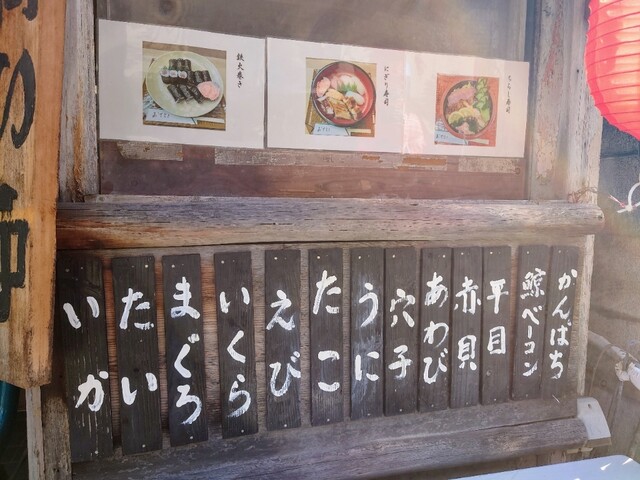 ちらし寿司
にぎり寿司
鉄火巻き
かんぱち
鯨ベーコン
平目
赤貝
あわび
穴子
うに
たこ
えび
いくら
まぐろ
たい
いか